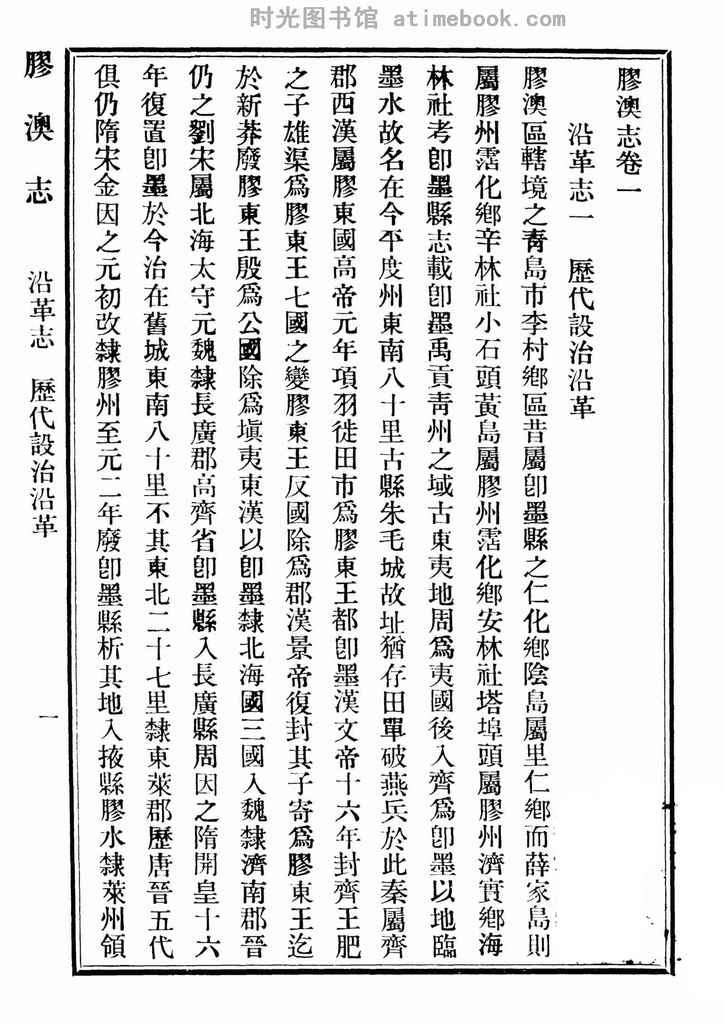 时光图书馆 atimebook.com
膠澳志卷一
沿革志一 歷代設治沿革
膠澳區轄境之青島市李村鄉區昔屬卽墨縣之仁化鄉陰島屬里仁鄉而薛家島則
屬膠州霑化鄉辛林社小石頭黃島屬膠州霑化鄉安林社塔埠頭屬膠州濟實鄉海
林社考卽墨縣志載卽墨禹貢靑州之域古東夷地周爲夷國後入齊爲卽墨以地臨
墨水故名在今平度州東南八十里古縣朱毛城故址猶存田單破燕兵於此秦屬齊
郡西漢屬膠東國高帝元年項羽徙田市爲膠東王都卽墨漢文帝十六年封齊王肥
之子雄渠爲膠東王七國之變膠東王反國除爲郡漢景帝復封其子寄爲膠東王迄
於新莽廢膠東王殷爲公國除爲塡夷東漢以卽墨隸北海國三國入魏隸濟南郡晉
仍之劉宋屬北海太守元魏隸長廣郡高齊省卽墨縣入長廣縣周因之隋開皇十六
年復置卽墨於今治在舊城東南八十里不其東北二十七里隸東萊郡歷唐晉五代
俱仍隋宋金因之元初改隸膠州至元二年廢卽墨縣析其地入掖縣膠水隸萊州領
膠澳志 沿革志 歷代設治沿革 一